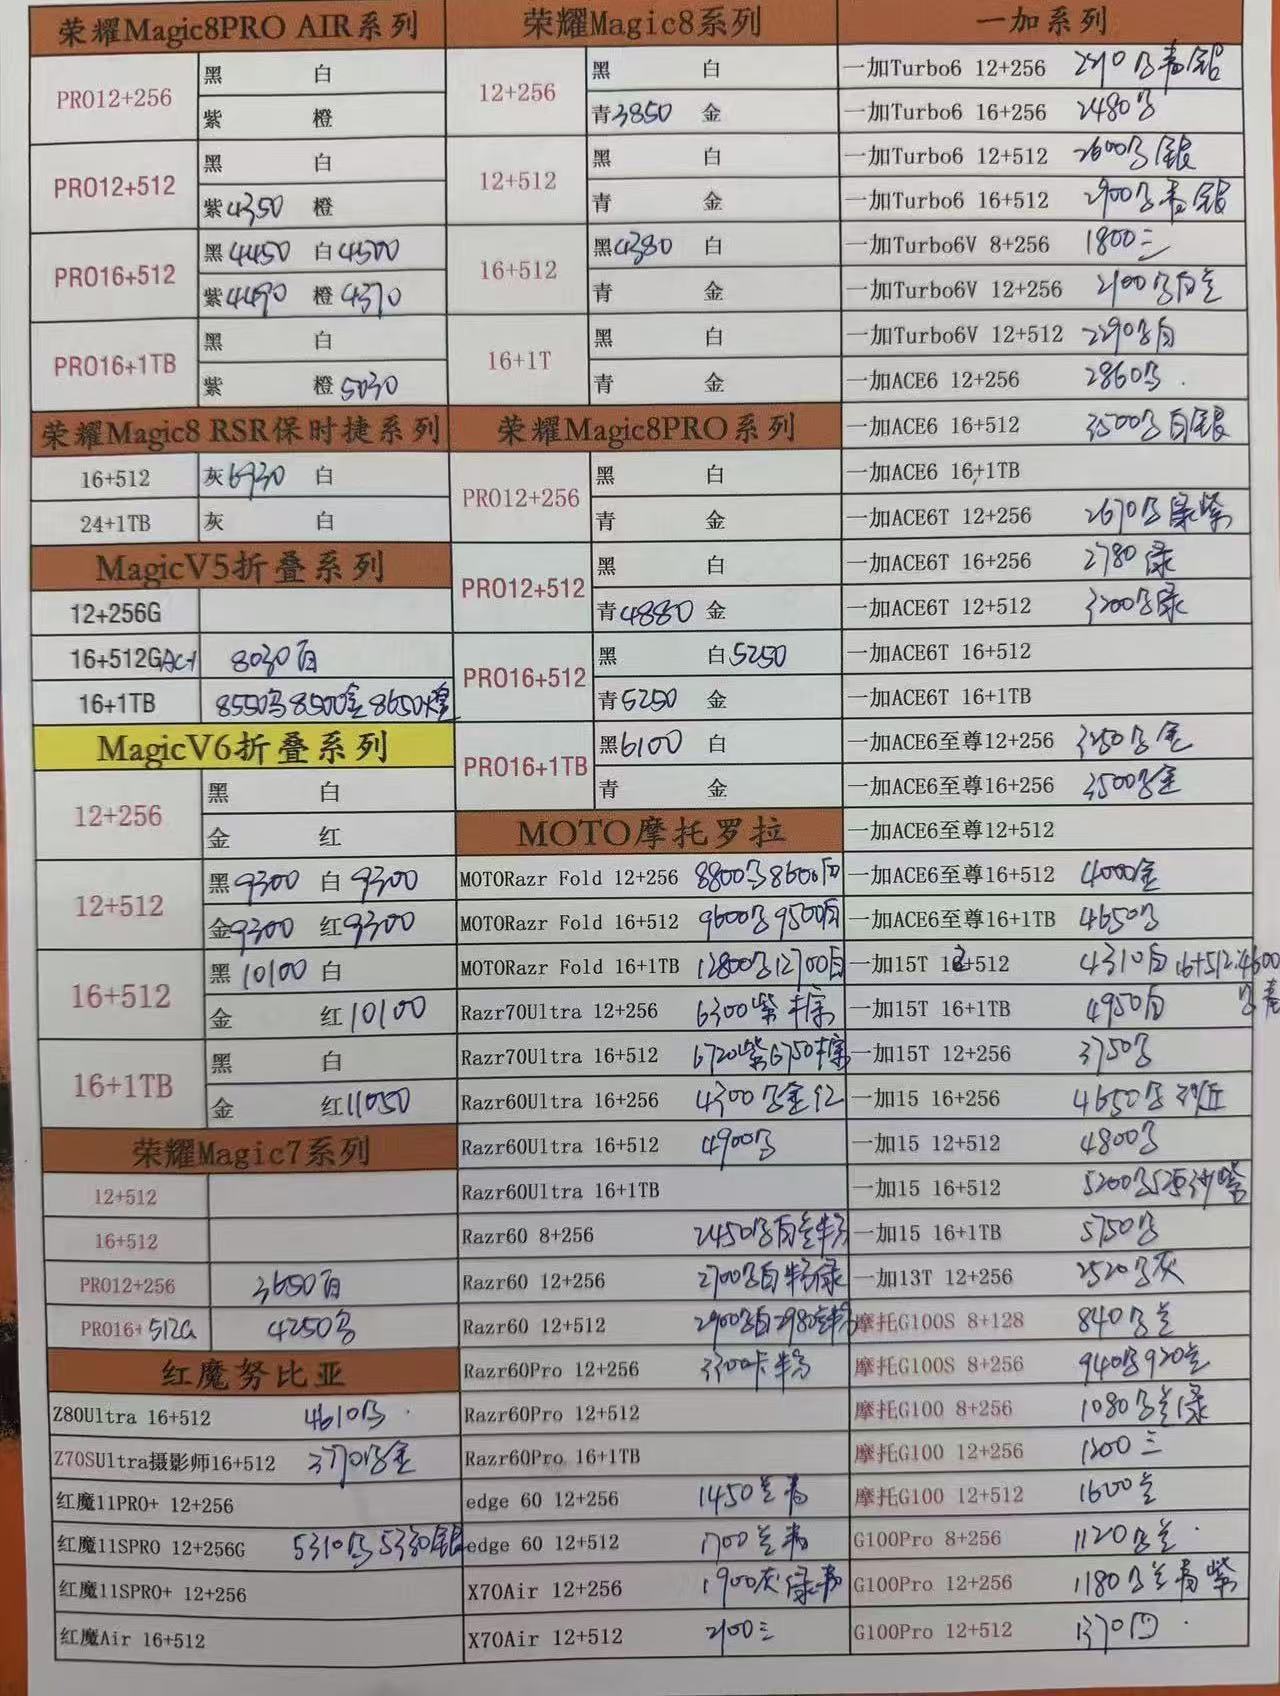 荣耀Magic8PRO AIR系列
PRO12+256
黑 白
紫 橙
PRO12+512
黑 白
紫4350 橙
PRO16+512
黑4450 白4500
紫4490 橙4370
PRO16+1TB
黑 白
紫 橙5030
荣耀Magic8 RSR保时捷系列
16+512 灰6930 白
24+1TB 灰 白
MagicV5折叠系列
12+256G
16+512G 8030白
16+1TB 8550 8500金 8650
MagicV6折叠系列
12+256
黑 白
金 红
12+512
黑9300 白9300
金9300 红9300
16+512
黑10100 白
金 红10100
16+1TB
黑 白
金 红11050
荣耀Magic7系列
12+512
16+512
PRO12+256 3650白
PRO16+512G 4250
红魔努比亚
Z80Ultra 16+512 4610
Z70SUltra摄影师16+512 3770 金
红魔11PRO+ 12+256
红魔11SPRO 12+256G 5310 5330银
红魔11SPRO+ 12+256
红魔Air 16+512
荣耀Magic8系列
12+256
黑 白
青3850 金
12+512
黑 白
青 金
16+512
黑4380 白
青 金
16+1T
黑 白
青 金
荣耀Magic8PRO系列
PRO12+256
黑 白
青 金
PRO12+512
黑 白
青4880 金
PRO16+512
黑 白5250
青5250 金
PRO16+1TB
黑6100 白
青 金
MOTO摩托罗拉
MOTORazr Fold 12+256 8800 8600白
MOTORazr Fold 16+512 9600 9500白
MOTORazr Fold 16+1TB 12800 12700白
Razr70Ultra 12+256 6300紫
Razr70Ultra 16+512 6720紫6750
Razr60Ultra 16+256 4300 金红
Razr60Ultra 16+512 4900
Razr60Ultra 16+1TB
Razr60 8+256 2450 白
Razr60 12+256 2700 白 绿
Razr60 12+512 2900 白2980
Razr60Pro 12+256 3300
Razr60Pro 12+512
Razr60Pro 16+1TB
edge 60 12+256 1450兰青
edge 60 12+512 1700兰青
X70Air 12+256 1900灰绿青
X70Air 12+512 2100三
一加系列
一加Turbo6 12+256 青银
一加Turbo6 16+256 2480
一加Turbo6 12+512 2600 银
一加Turbo6 16+512 2900 青银
一加Turbo6V 8+256 1800三
一加Turbo6V 12+256 2100 白兰
一加Turbo6V 12+512 2290 白
一加ACE6 12+256 2860
一加ACE6 16+512 3500 白银
一加ACE6 16+1TB
一加ACE6T 12+256 2670 绿紫
一加ACE6T 16+256 2780绿
一加ACE6T 12+512 3200 绿
一加ACE6T 16+512
一加ACE6T 16+1TB
一加ACE6至尊12+256 3250 金
一加ACE6至尊16+256 3500 金
一加ACE6至尊12+512
一加ACE6至尊16+512 4000金
一加ACE6至尊16+1TB 4650
一加15T 12+512 4310白 16+512:4600 青
一加15T 16+1TB 4950白
一加15T 12+256 3750
一加15 16+256 4650
一加15 12+512 4800
一加15 16+512 5200 紫
一加15 16+1TB 5750
一加13T 12+256 2520 灰
摩托G100S 8+128 840 兰
摩托G100S 8+256 940 920兰
摩托G100 8+256 1080 兰绿
摩托G100 12+256 1300三
摩托G100 12+512 1600兰
G100Pro 8+256 1120 兰
G100Pro 12+256 1180 兰青紫
G100Pro 12+512 1370四